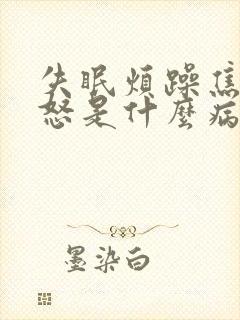 失眠煩躁焦
怒是什麼病
墨染白